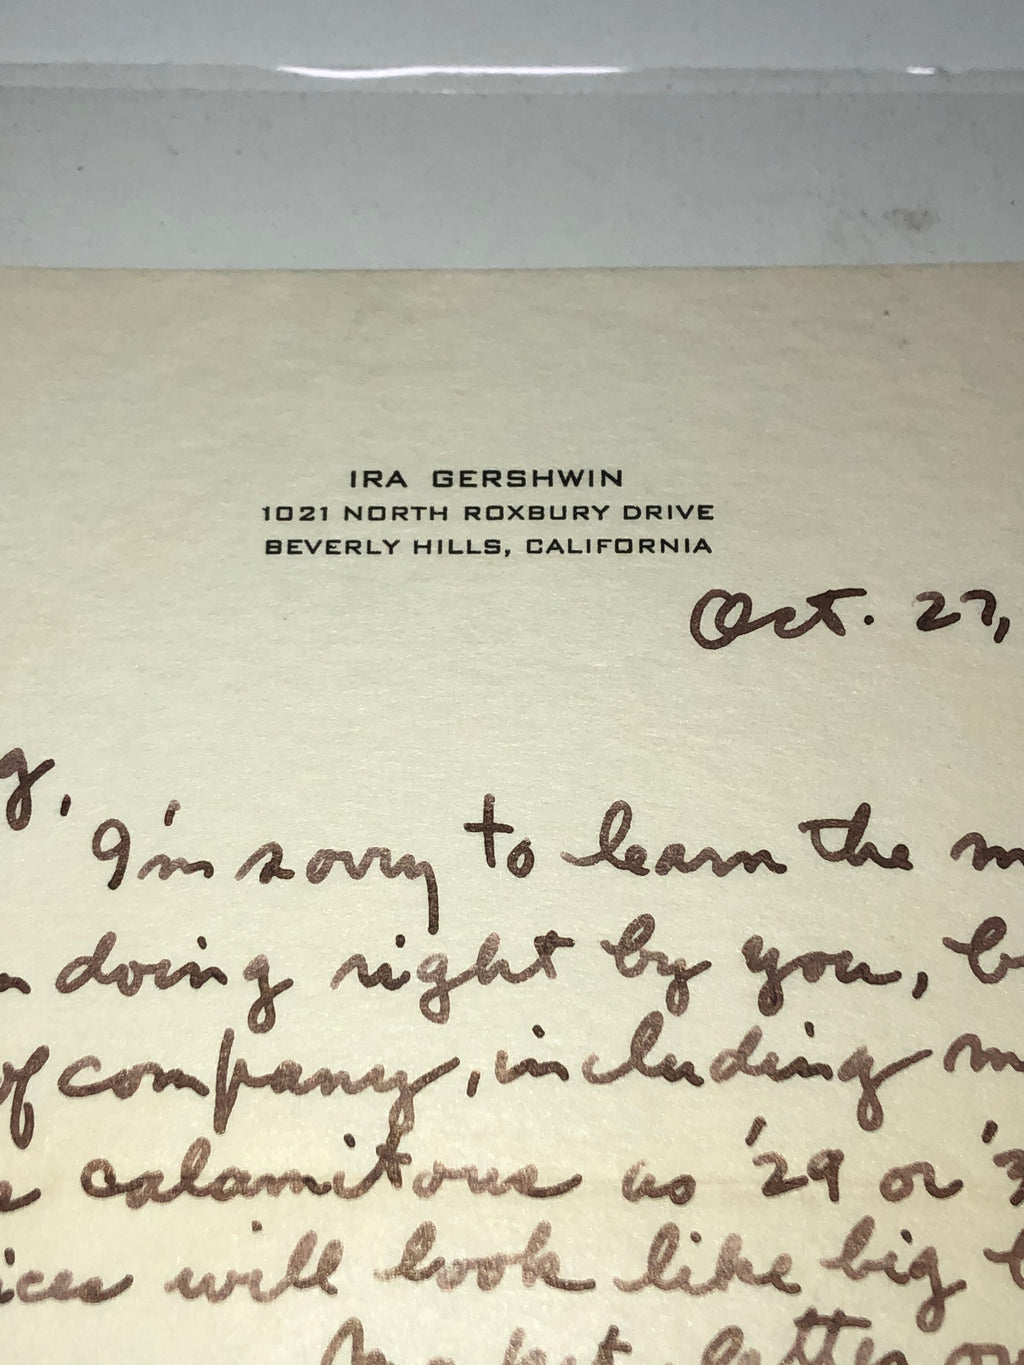 IRA GERSHWIN
1021 NORTH ROXBURY DRIVE
BEVERLY HILLS, CALIFORNIA
Oct. 27,
g,
I'm sorry to learn the m
doing right by you, b
of company, including m
calamitous as '29 or '3
ices will look like big b
letter